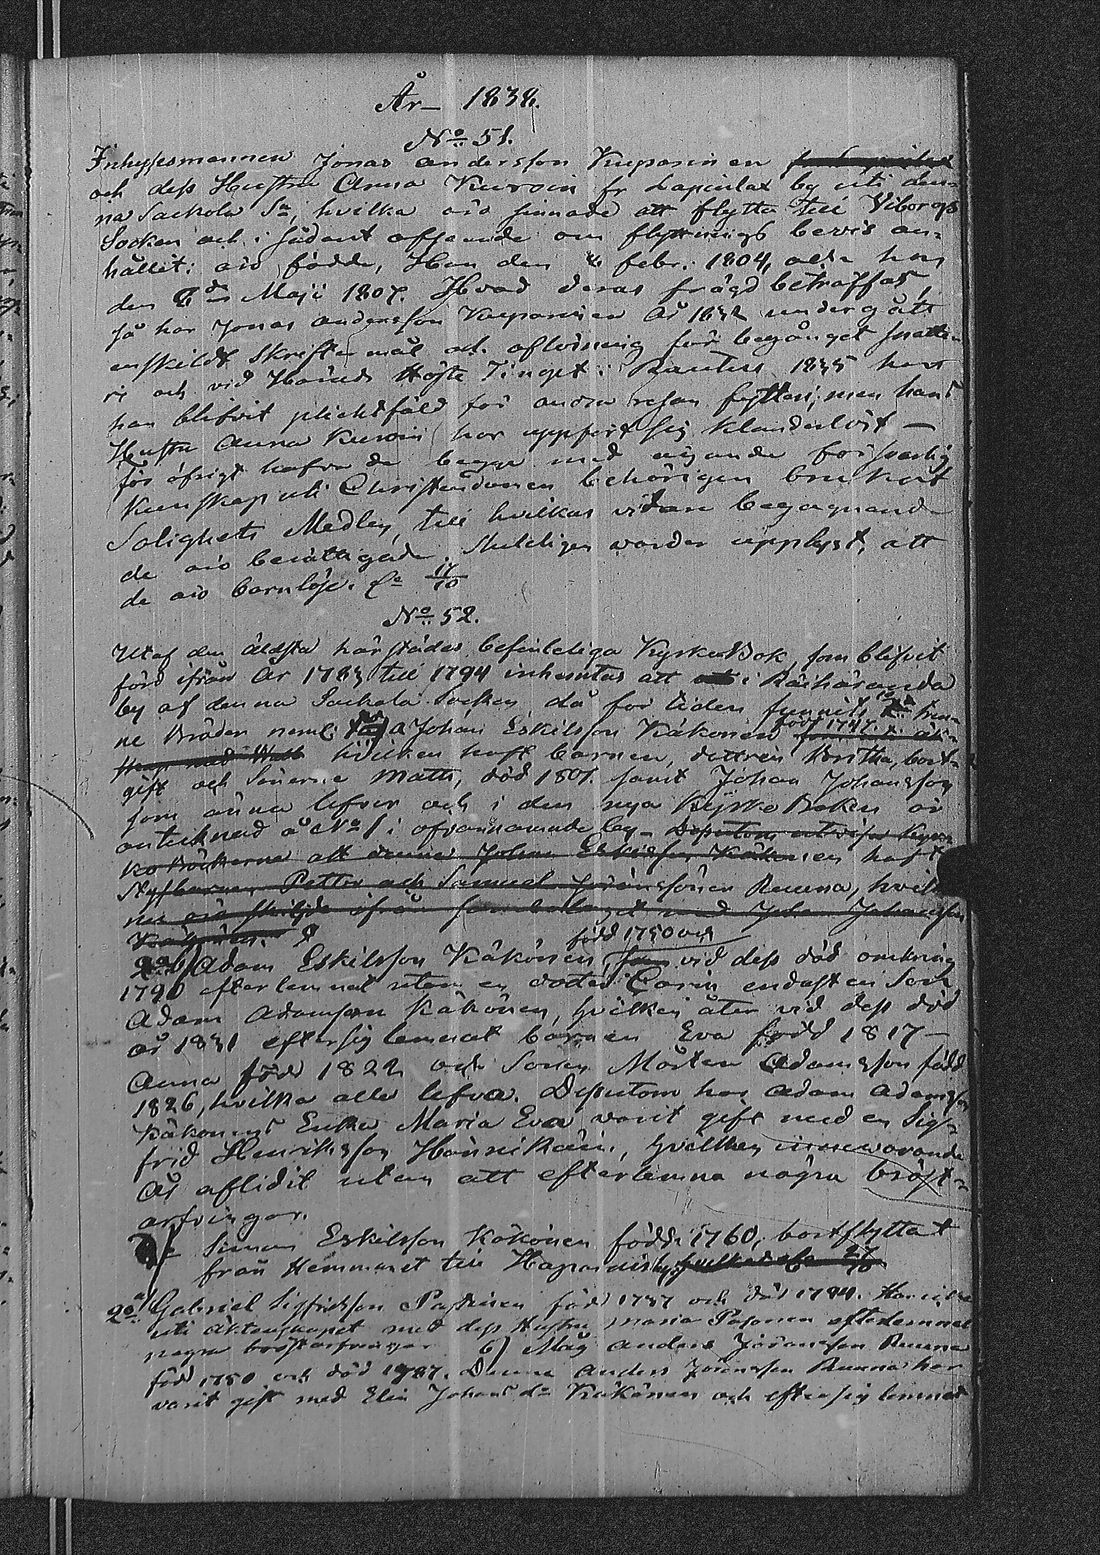 År 1838.
No 51.
Inhysesmannen Jonas Andersson Kuparinen
och dess Hustru Anna Kurvin fr Lapinlax by uti den-
na Sackola Sn, hvilka äro sinnade att flytta till Viborgs
Socken och i sådant afseende om flyttnings bevis an-
hållit: äro födde, Han den 6 febr. 1804, och hon
den Maji 1807. Hvad deras frägd beträffar,
så har Jonas Andersson Kuparinen År 1832 undergått
enskildt Skriftermål och aflösning för begånget snatte-
ri och vid Härads Höste Tinget i Rautus 1835 har
han blifvit plicktfäld för andra resan fylleri; men hans
Hustru Anna Kurvin har uppfört sig klanderlöst —
för öfrigt hafva de begge med ägande försvarlig
Kunskap uti Christendomen behörigen brukat
Salighets Medlen, till hvilkas vidare begagnande
de äro berättigade. Skuldigen varder upplyst, att
de äro barnlöse. 17/10
No 52.
Utaf den äldsta härstädes befinteliga KyrkoBok, som blifvit
förd ifrån År 1783 till 1794 inhemtas att i Räihäranda
by af denna Sackola Socken då för tiden funnits
ne Bröder neml. a Johan Eskilsson Käkönen född 1747.
hvilken haft barnen, dottren Bertha, bort-
gift och Sönerne Matts, död 1801 samt Johan Johansson
som ännu lefver och i den nya Kyrko Boken är
antecknad å No 1 i ofvannämnde by – Dessutom utvisa Kyr-
ko Böckerne att denne Johan Eskilsson Käkönen haft
Styfbarnen Petter och Samuel Jöransöner Ruuna, hvil-
ka äro skilgde ifrån
född 1750 och
b) Adam Eskilsson Käkönen, vid dess död omkring
1790 efterlemnat utom en dotter Carin endast en Son,
Adam Adamsson Käkönen, hvilken åter vid dess död
år 1831 efter sig lemnat barnen Eva född 1817 —
Anna född 1822 och Sonen Mårten Adamsson född
1826, hvilka alle lefva. Dessutom har Adam Adamsson
Käkönens Enka Maria Eva varit gift med en Sig-
frid Henriksson Hännikäin, hvilken innevarande
År aflidit utan att efterlemna några bröst-
arfvingar.
c Simon Eskilsson Käkönen född 1760, bortflyttat
från Hemmanet till
2o a Gabriel Sigfridsson född 1737 och död 1794. Han
uti äktenskapet med dess Hustru Maria efterlemnat
några bröstarfvingar b) Måg Anders Jöransson Ruuna
född 1750 och död 1787. Denne Anders Jöransson Ruuna har
varit gift med Elin Johans dr Käkönen och efter sig lemnat